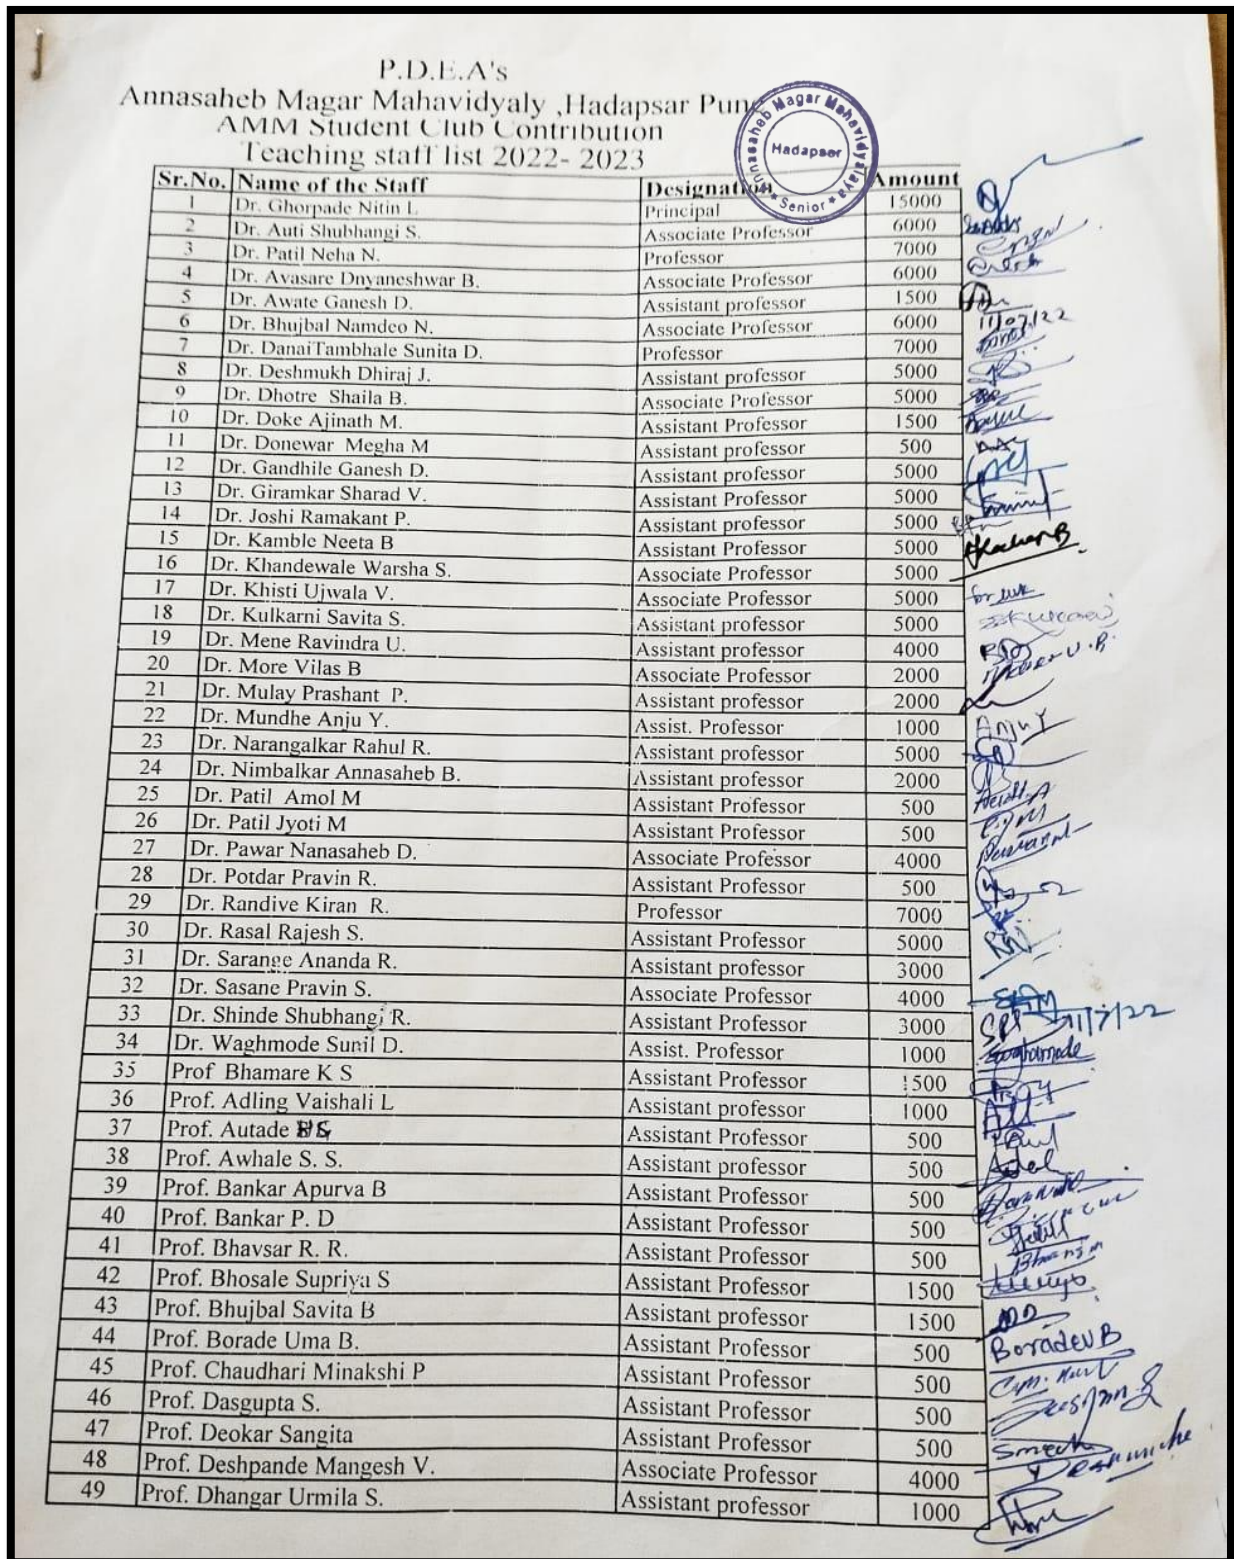 P.D.E.A's
Annasaheb Magar Mahavidyaly ,Hadapsar Pune
AMM Student Club Contribution
Teaching staff list 2022- 2023
Annasaheb Magar Mahavidyalaya
Hadapsar
* Senior *
Sr.No. Name of the Staff Designation Amount
1 Dr. Ghorpade Nitin L Principal 15000
2 Dr. Auti Shubhangi S. Associate Professor 6000
3 Dr. Patil Neha N. Professor 7000
4 Dr. Avasare Dnyaneshwar B. Associate Professor 6000
5 Dr. Awate Ganesh D. Assistant professor 1500
6 Dr. Bhujbal Namdeo N. Associate Professor 6000 11/07/22
7 Dr. DanaiTambhale Sunita D. Professor 7000
8 Dr. Deshmukh Dhiraj J. Assistant professor 5000
9 Dr. Dhotre Shaila B. Associate Professor 5000
10 Dr. Doke Ajinath M. Assistant Professor 1500
11 Dr. Donewar Megha M Assistant professor 500
12 Dr. Gandhile Ganesh D. Assistant professor 5000
13 Dr. Giramkar Sharad V. Assistant Professor 5000
14 Dr. Joshi Ramakant P. Assistant professor 5000
15 Dr. Kamble Neeta B Assistant Professor 5000
16 Dr. Khandewale Warsha S. Associate Professor 5000
17 Dr. Khisti Ujwala V. Associate Professor 5000
18 Dr. Kulkarni Savita S. Assistant professor 5000
19 Dr. Mene Ravindra U. Assistant professor 4000
20 Dr. More Vilas B Associate Professor 2000
21 Dr. Mulay Prashant P. Assistant professor 2000
22 Dr. Mundhe Anju Y. Assist. Professor 1000 Anju Y
23 Dr. Narangalkar Rahul R. Assistant professor 5000
24 Dr. Nimbalkar Annasaheb B. Assistant professor 2000
25 Dr. Patil Amol M Assistant Professor 500
26 Dr. Patil Jyoti M Assistant Professor 500
27 Dr. Pawar Nanasaheb D. Associate Professor 4000
28 Dr. Potdar Pravin R. Assistant Professor 500
29 Dr. Randive Kiran R. Professor 7000
30 Dr. Rasal Rajesh S. Assistant Professor 5000
31 Dr. Sarange Ananda R. Assistant professor 3000
32 Dr. Sasane Pravin S. Associate Professor 4000
33 Dr. Shinde Shubhangi R. Assistant Professor 3000 11/7/22
34 Dr. Waghmode Sunil D. Assist. Professor 1000
35 Prof Bhamare K S Assistant Professor 1500
36 Prof. Adling Vaishali L Assistant professor 1000
37 Prof. Autade Assistant Professor 500
38 Prof. Awhale S. S. Assistant professor 500
39 Prof. Bankar Apurva B Assistant Professor 500
40 Prof. Bankar P. D Assistant Professor 500
41 Prof. Bhavsar R. R. Assistant Professor 500
42 Prof. Bhosale Supriya S Assistant Professor 1500
43 Prof. Bhujbal Savita B Assistant professor 1500
44 Prof. Borade Uma B. Assistant Professor 500 Borade U B
45 Prof. Chaudhari Minakshi P Assistant Professor 500
46 Prof. Dasgupta S. Assistant Professor 500
47 Prof. Deokar Sangita Assistant Professor 500
48 Prof. Deshpande Mangesh V. Associate Professor 4000
49 Prof. Dhangar Urmila S. Assistant professor 1000